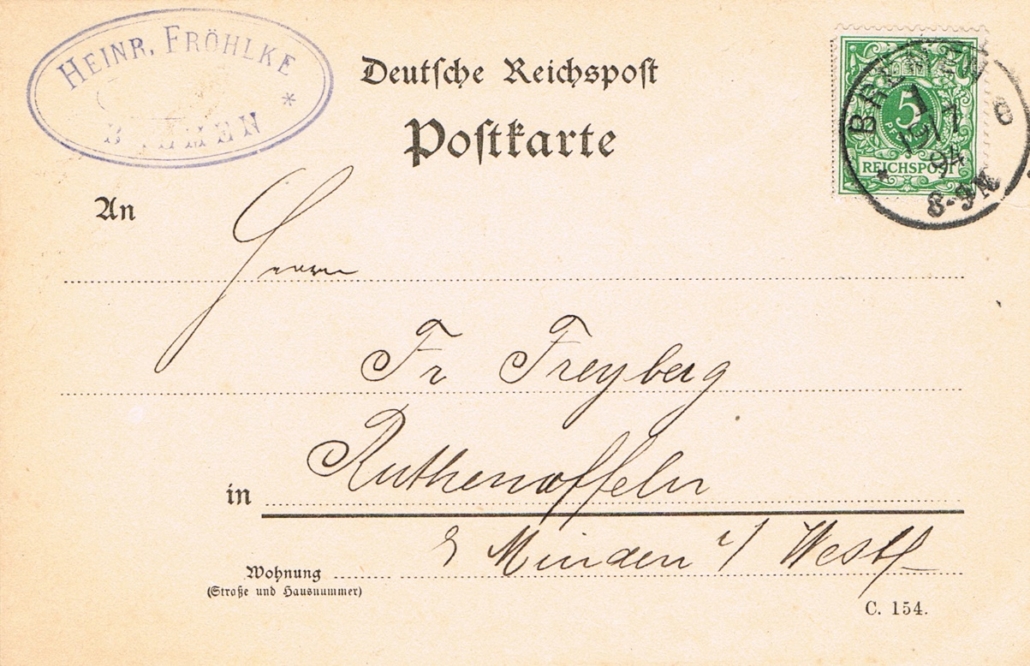 HEINR. FRÖHLKE
* BREMEN *
Deutsche Reichspost
Postkarte
5
PF
REICHSPOST
BREMEN
1
94
8-9N
An
Herrn
Fr Freyberg
in Ruthenoffeln
Minden i/ Westf
Wohnung
(Straße und Hausnummer)
C. 154.